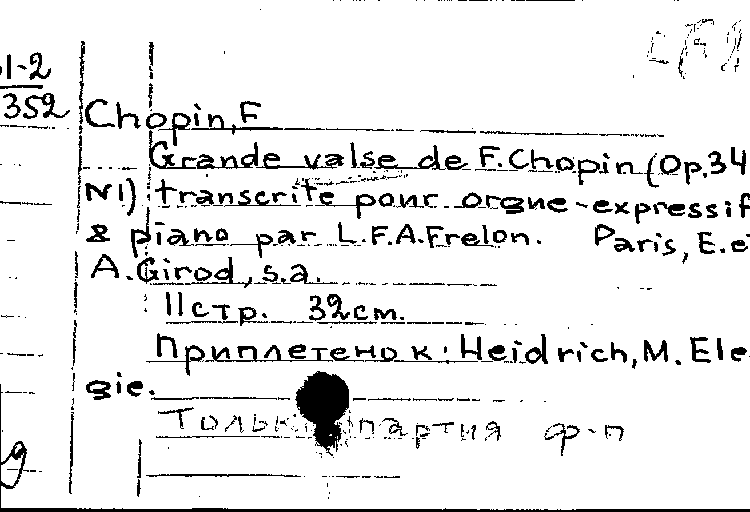 1-2
352
Chopin, F
Grande valse de F. Chopin (Op. 34
N1) transcrite pour orgue-expressif
& piano par L.F.A. Frelon. Paris, E. et
A. Girod, s.a.
11 стр. 32 см.
Приплетено к: Heidrich, M. Ele
gie.
Только партия ф-п